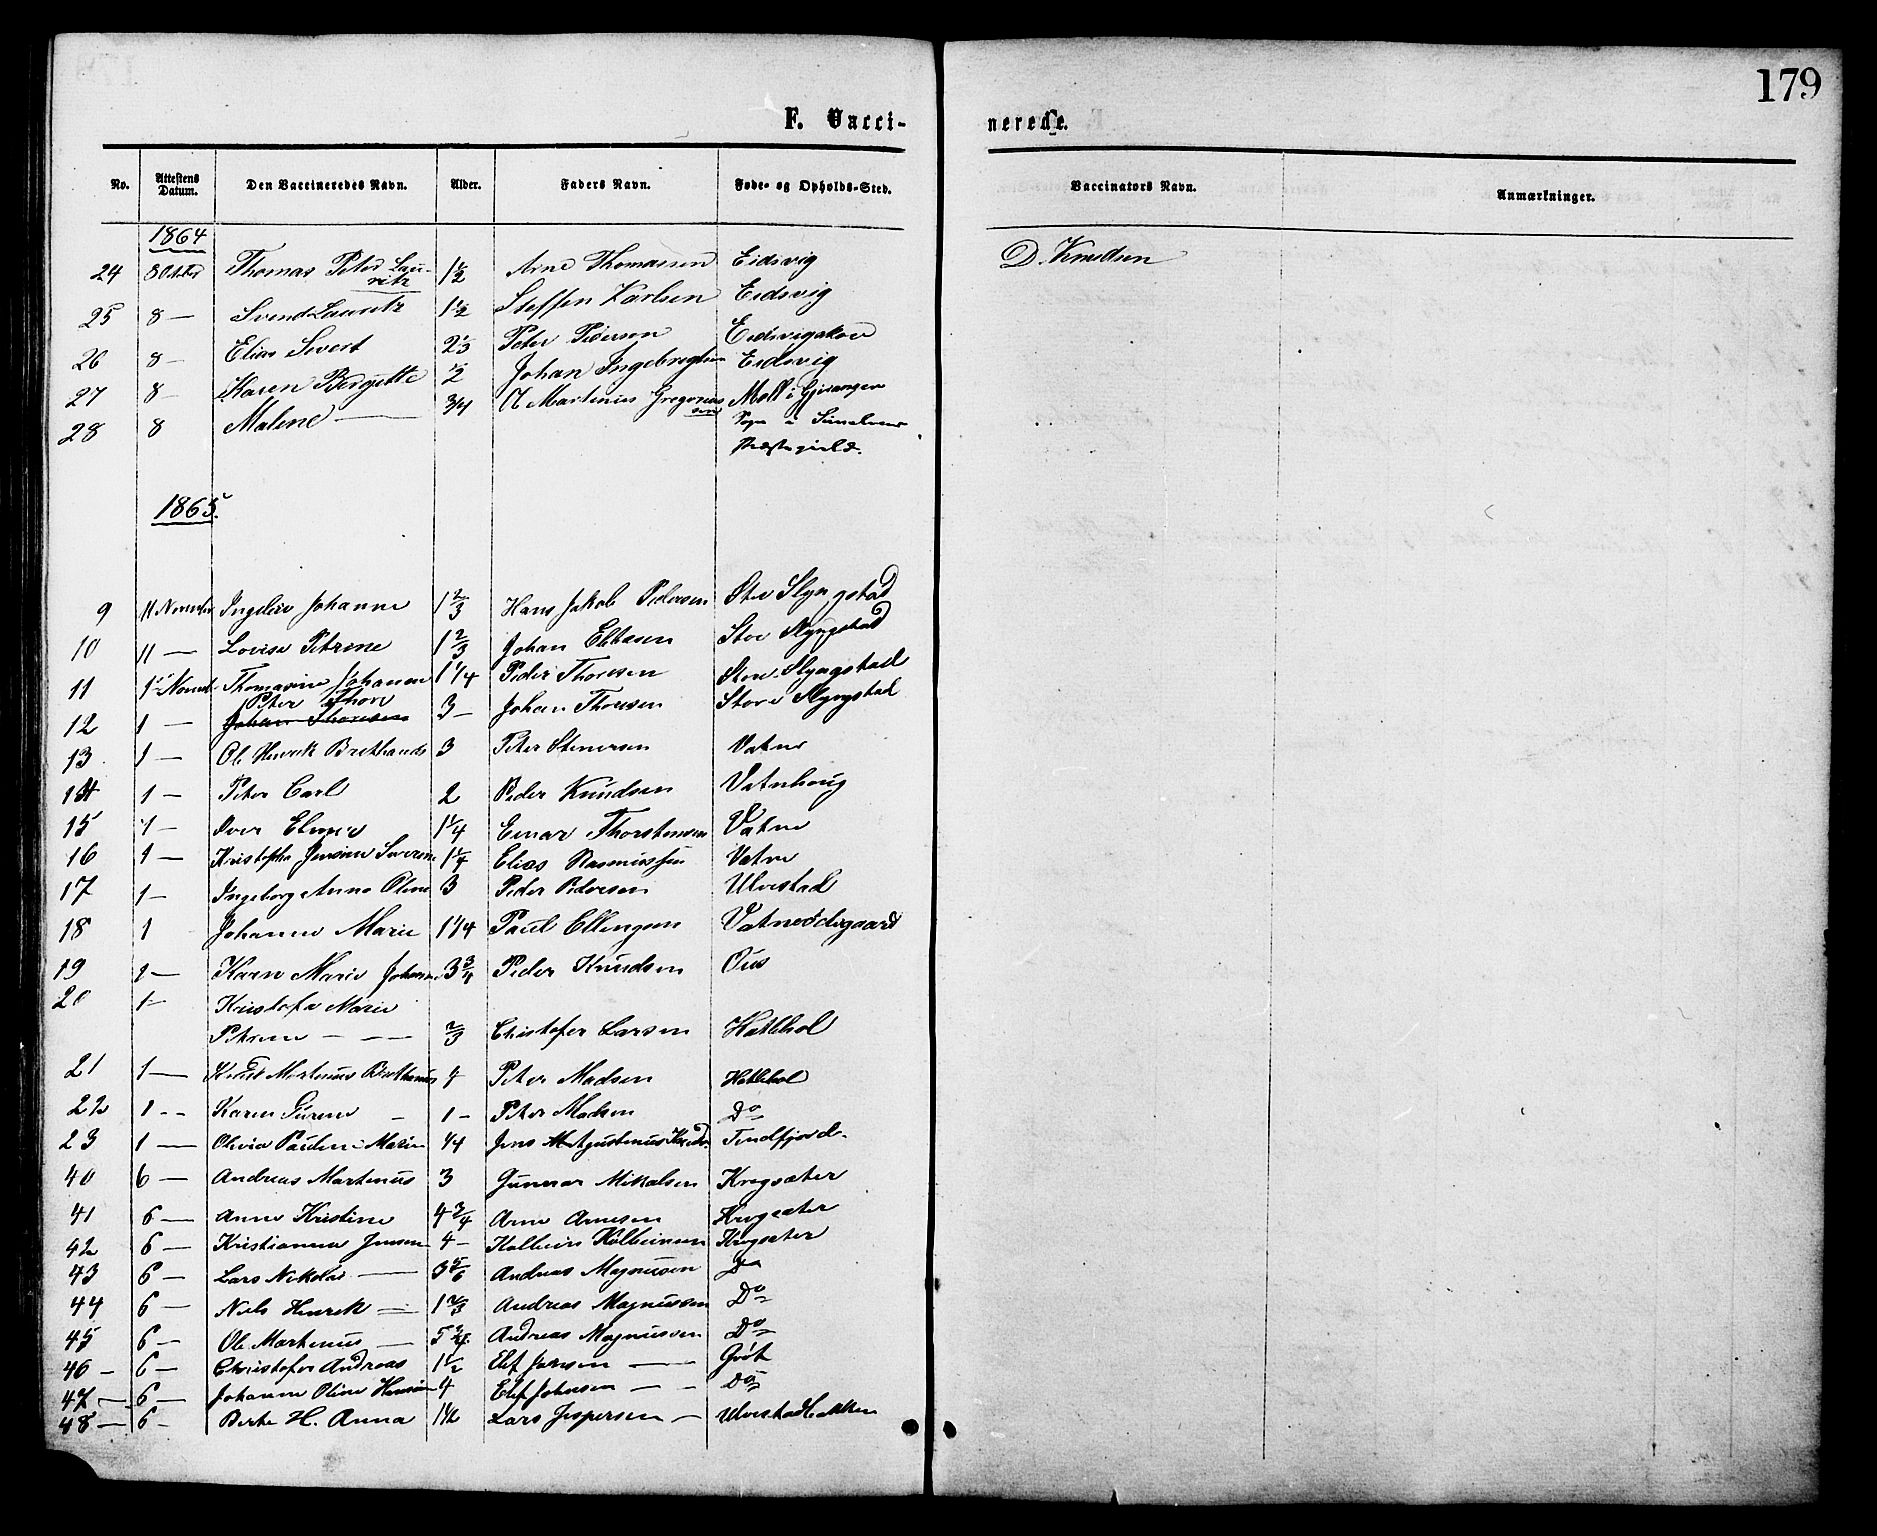 179
F. Vacci- nerede.
No. Attestens Datum. Den Vaccineredes Navn. Alder. Faders Navn. Føde- og Opholds-Sted. Vaccinators Navn. Anmærkninger.
1864
24 8 Octbr Thomas Peter Lau-ritz 1 1/2 Arne Thomassen Eidsvig D. Knudsen
25 8 — Svend Lauritz 1 1/2 Steffen Karlsen Eidsvig
26 8 — Elias Sivert 2 1/3 Peter Pedersen Eidsvigskov
27 8 — Karen Bergitte 1/2 Johan Ingebregtsen Eidsvig
28 8 Malene — 3/4 Martinus Gregorius-sen Moll i Gjeiranger
Sogn i
Præstegield.
1865.
9 11 November Johanne 1 2/3 Hans Jakob Pedersen Store Slyngstad
10 11 — Lovise Petrine 1 2/3 Johan Store Slyngstad
11 1 Novemb. Thomasine Johanne 1 1/4 Peder Thoresen Store Slyngstad
12 1 — Peter Thore Johan Thoresen 3 — Johan Thoresen Store Slyngstad
13 1 — Ole Henrik 3 Peter Stenersen Vatne
14 1 — Peter Carl 2 Peder Knudsen Vatnehoug
15 1 — Iver Elmer 1 1/4 Einar Thorstensen Vatne
16 1 — Severine 1 1/4 Elias Rasmussen Vatne
17 1 — Ingeborg Anna Oline 3 Peder Pedersen Ulvestad
18 1 Johanne Marie 1 1/4 Paul Ellingsen Vatneødegaard
19 1 — Karen Marie Johanne 3 3/4 Peder Knudsen Ous
20 1 — Kristofa Marie
Petrine — — 2/3 Christofer Larsen Hatlehol
21 1 — Knut Martinus 4 Peter Madsen Hatlehol
22 1 — Karen — 1 — Peter Madsen Do
23 1 — Olivia Pauline Marie 1/4 Jens Tendfjord.
40 6 — Andreas Martinus 3 Gunnar Mikalsen Krogsæter
41 6 — Anne Kristine 4 3/4 Arne Arnesen Krogsæter
42 6 — Kristianna Jensen 4 — Kolbein Kolbeinsen Krogsæter
43 6 — Lars Nikolai — 3 5/6 Andreas Magnussen Do
44 6 — Niels Henrik — 1 2/3 Andreas Magnussen Do
45 6 — Ole Martinus — 5 Andreas Magnussen Do
46 — 6 — Christofer Andreas 1 1/2 Elef Jansen — Grøt
47 — 6 — Johanne Oline 4 Elef Johnsen — — Do
48 — 6 — Berte H. Anna 1 1/2 Lars Jespersen — Ulvestadbakken